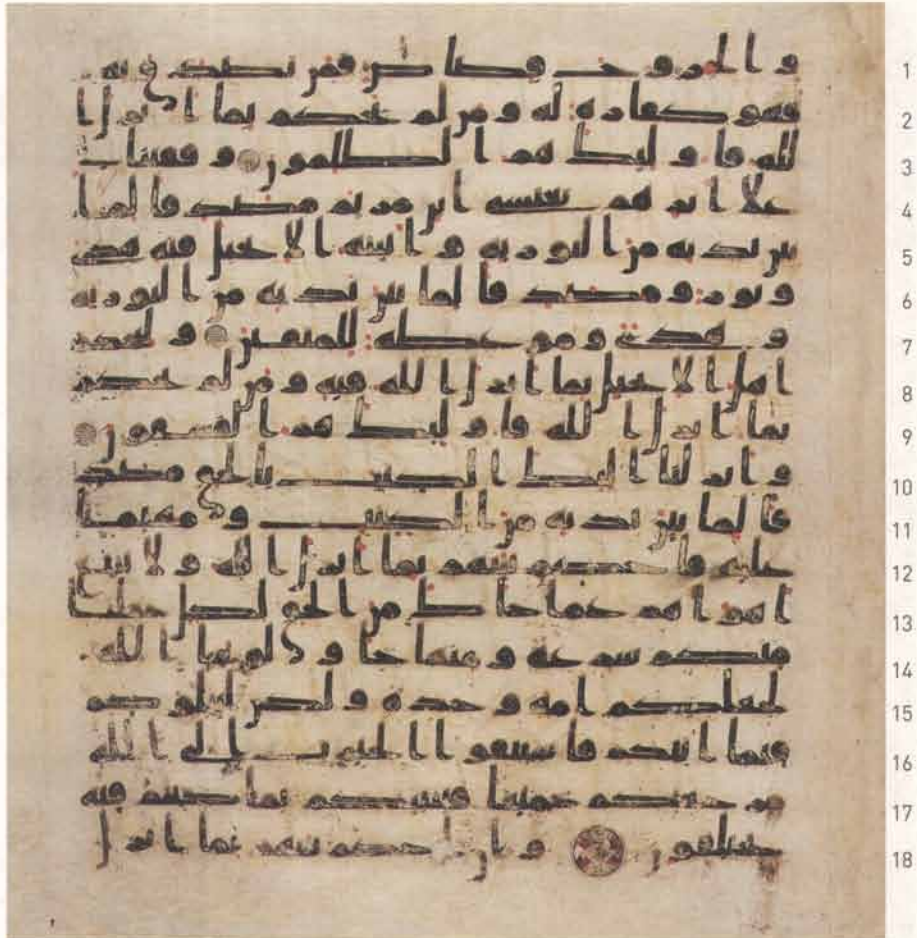 والجروح قصاص فمن تصدق به 1
فهو كفارة له ومن لم يحكم بما انزل ا 2
لله فاولئك هم الظلمون وقفينا 3
على اثرهم بعيسى ابن مريم مصدقا لما 4
بين يديه من التورية واتينه الانجيل فيه هدى 5
ونور ومصدقا لما بين يديه من التورية 6
وهدى وموعظة للمتقين وليحكم 7
اهل الانجيل بما انزل الله فيه ومن لم يحكم 8
بما انزل الله فاولئك هم الفسقون 9
وانزلنا اليك الكتب بالحق مصد 10
قا لما بين يديه من الكتب ومهيمنا 11
عليه فاحكم بينهم بما انزل الله ولا تتبع 12
اهواهم عما جاك من الحق لكل جعلنا 13
منكم شرعة ومنهاجا ولو شا الله 14
لجعلكم امة وحدة ولكن ليبلوكم 15
فيما اتيكم فاستبقوا الخيرت الى الله 16
مرجعكم جميعا فينبئكم بما كنتم فيه 17
تختلفون وان احكم بينهم بما انزل 18